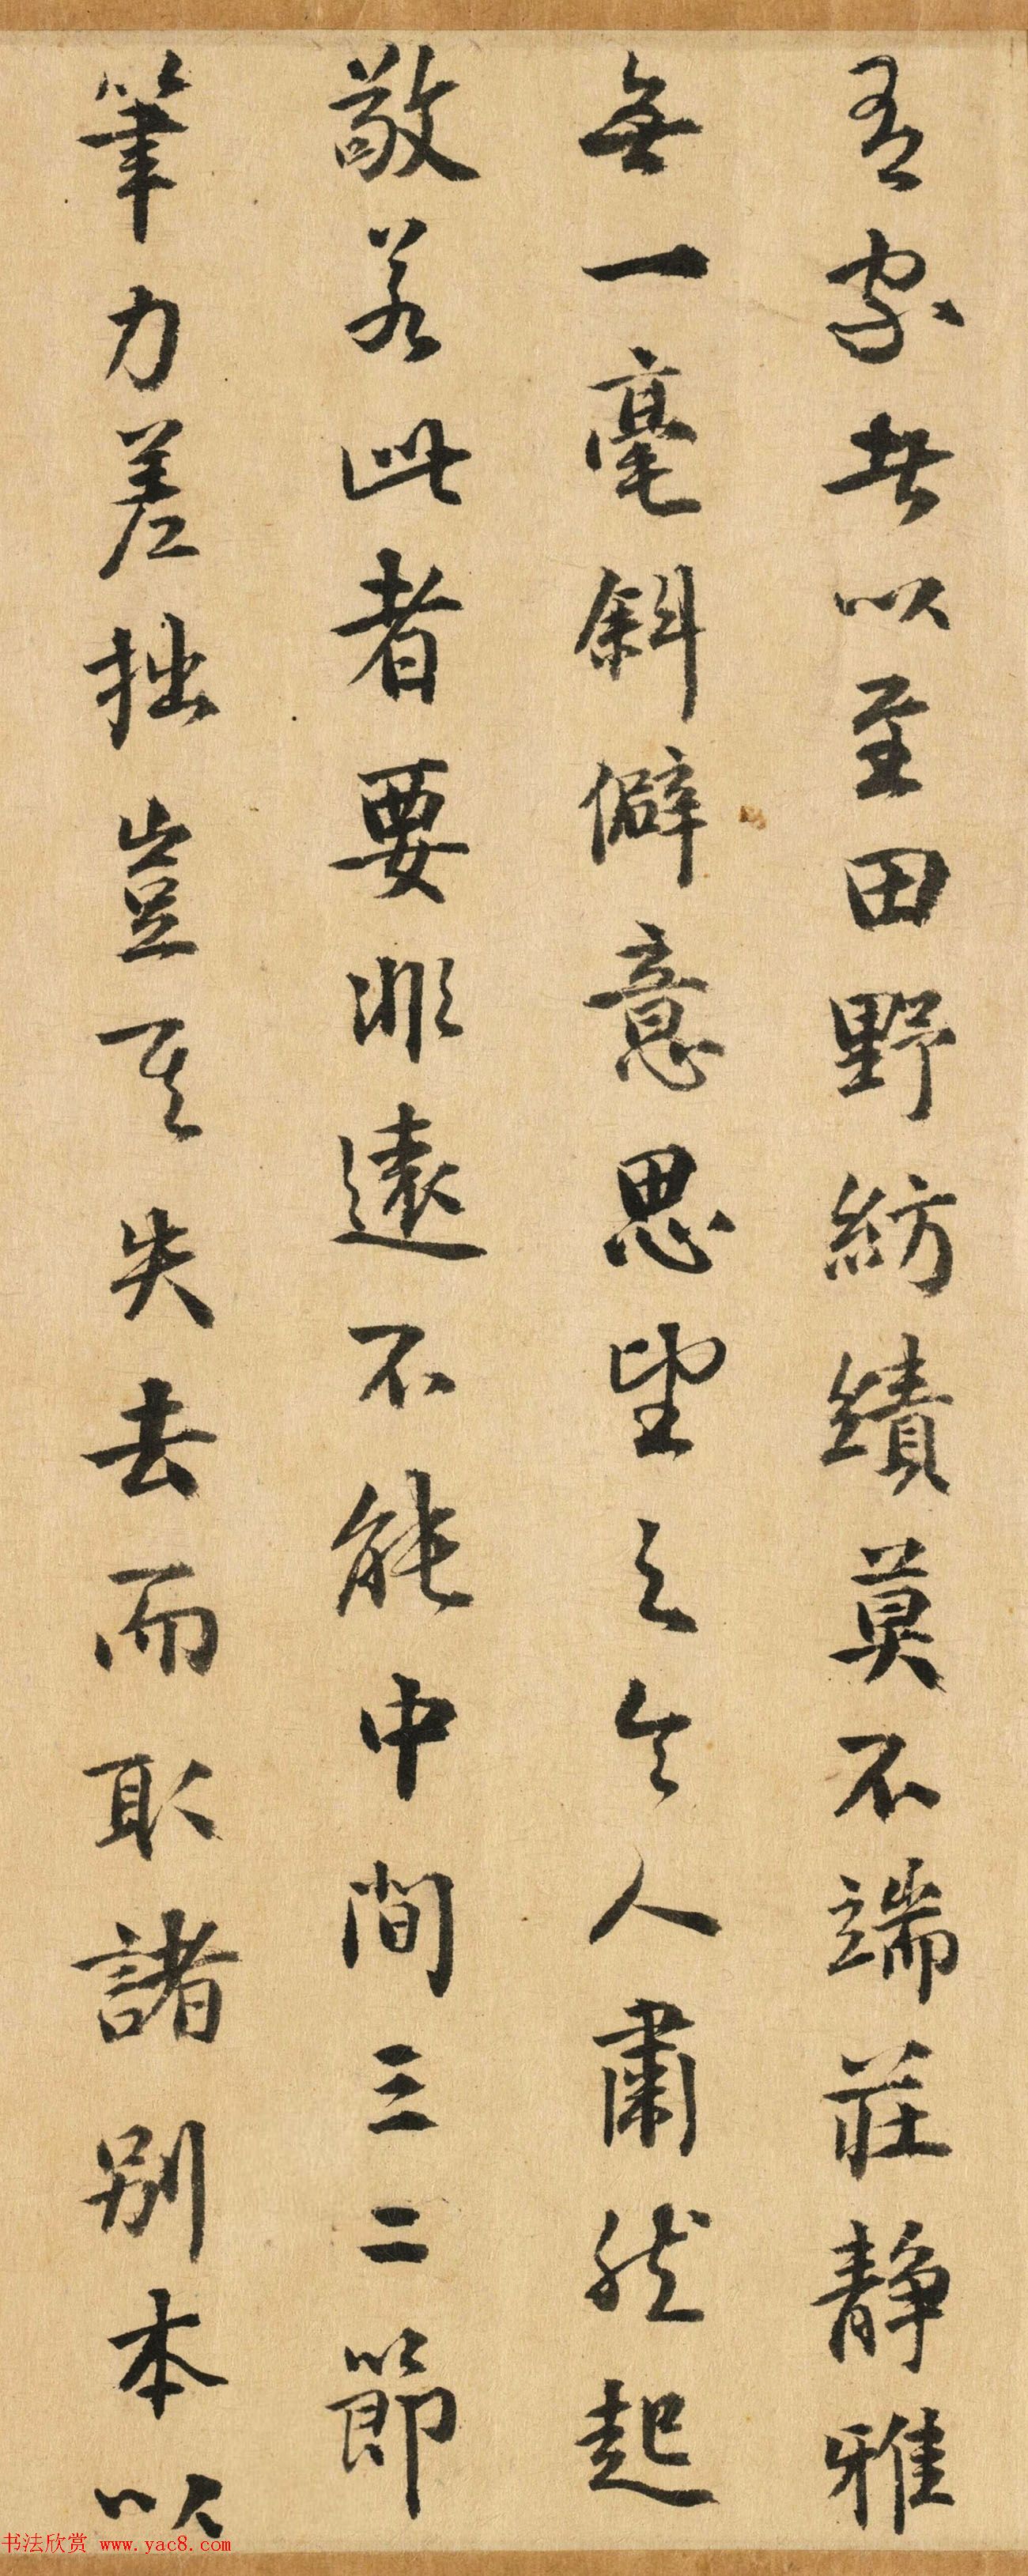 有家者以至田野紡績莫不端莊静雅
無一毫斜僻意思望之令人肅然起
敬若此者要非遠不能中間三二節
筆力差拙豈其失去而取諸別本以
书法欣赏 www.yac8.com